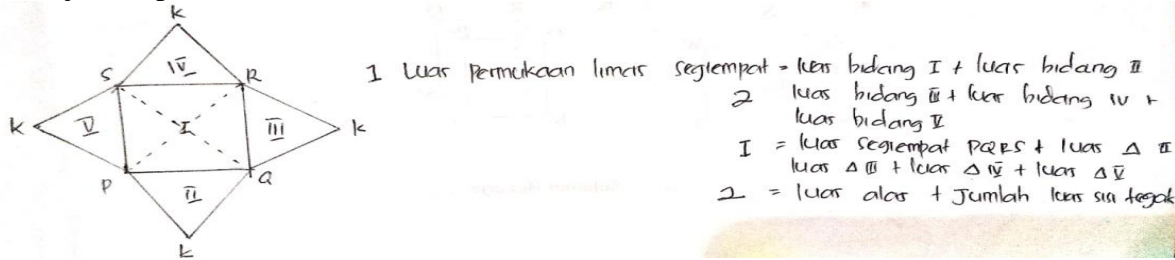 k
IV
S R
k V I III k
P Q
II
k
1 Luas Permukaan limas segiempat = luas bidang I + luas bidang II
2 luas bidang III + luas bidang IV +
luas bidang V
I = luas segiempat PQRS + luas Δ II
luas Δ III + luas Δ IV + luas Δ V
2 = luas alas + Jumlah luas sisi tegak